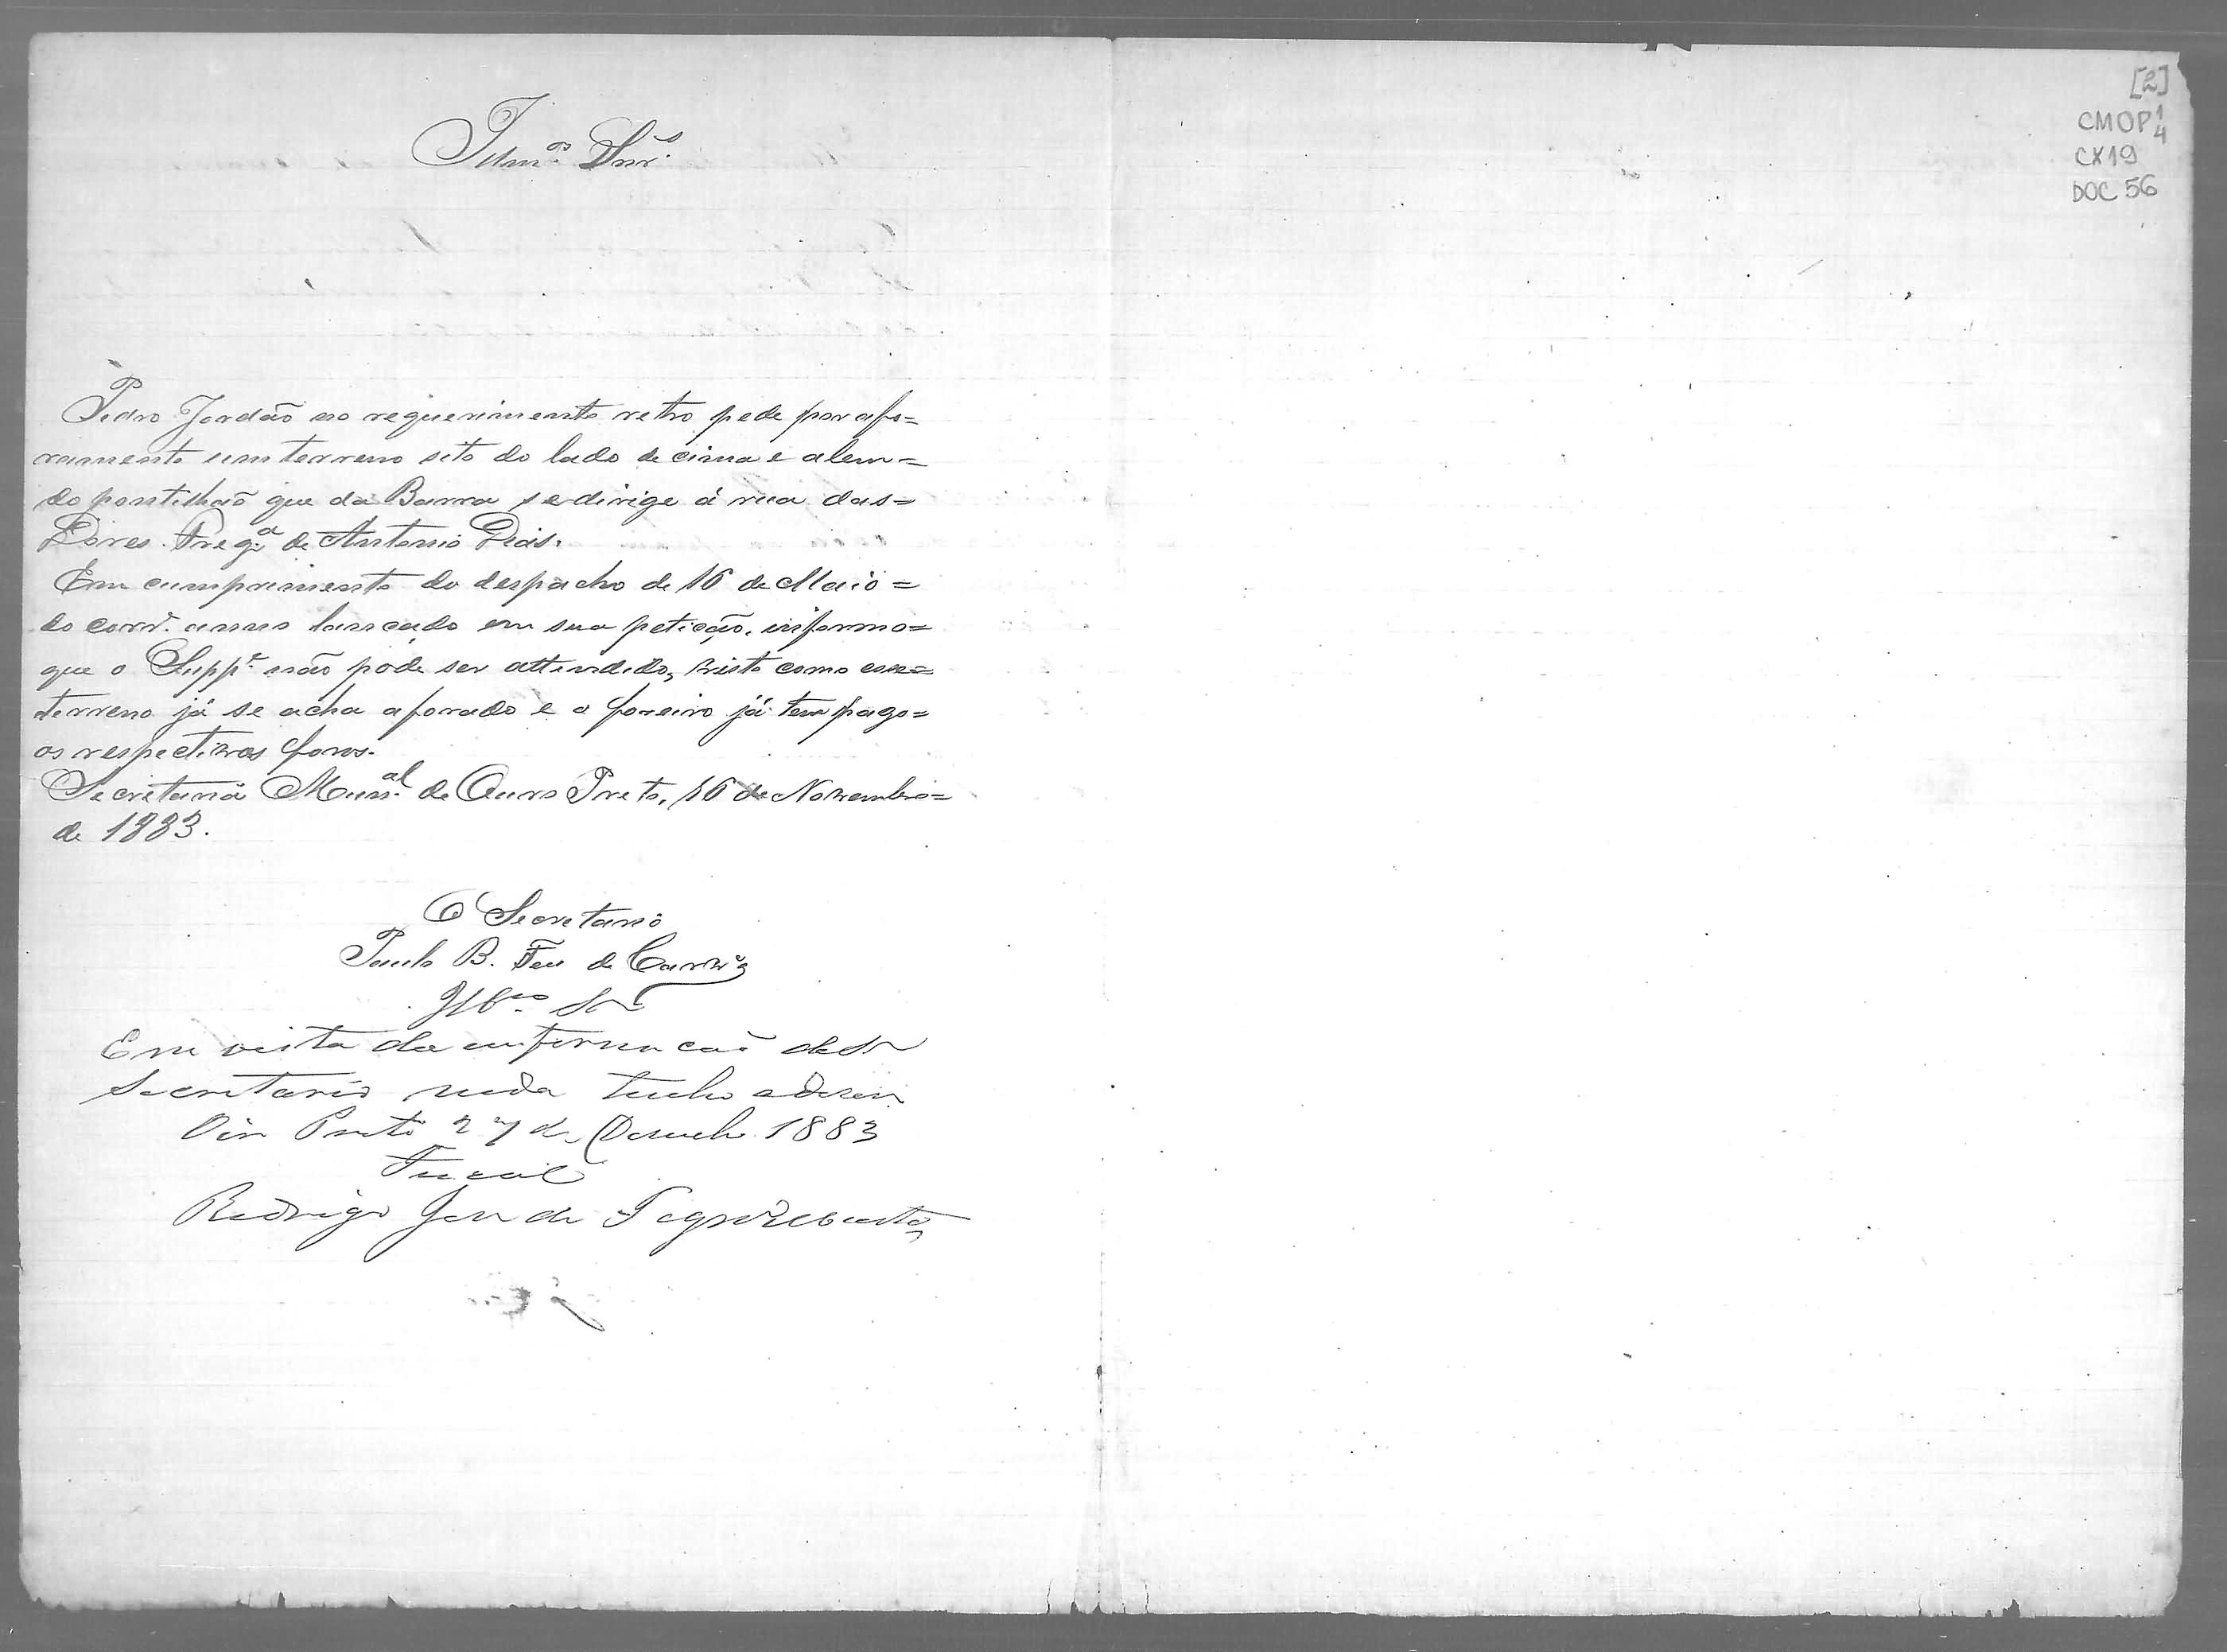 Illmos. Snrs.
Pedro Jordão no requerimento retro pede por afo=
ramento um terreno sito do lado de cima e alem=
do pontilhaõ que da Barra se dirige á rua das=
Dores. Frega. de Antonio Dias.
Em cumprimento do despacho de 16 de Maio=
do corre. anno lançado em sua petição, informo=
que o Suppe. não pode ser attendido, visto como esse=
terreno já se acha aforado e o foreiro já tem pago=
os respectivos foros.
Secretaria Munal. de Ouro Preto, 16 de Novembro=
de 1883.
O Secretario
Paulo B. de
Em vista da informacaõ do Sr
Secretario nada tenho a dizer
Preto 27 de 1883
Fiscal
Rodrigo José de
[2]
CMOP 1/4
CX19
DOC 56